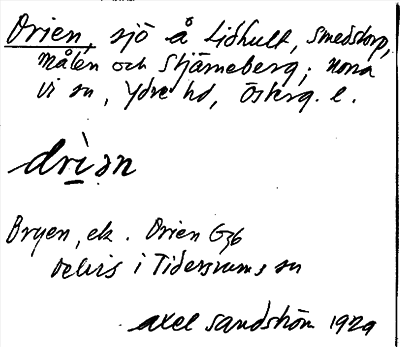 Drien, sjö å Lidhult, Smedstorp,
Målen och Stjärneberg; Norra
Vi sn, Ydre hd, Österg. l.
drìǝn
Bryen, ek. Drien G36
delvis i Tidersrums sn
Axel Sandström 1929